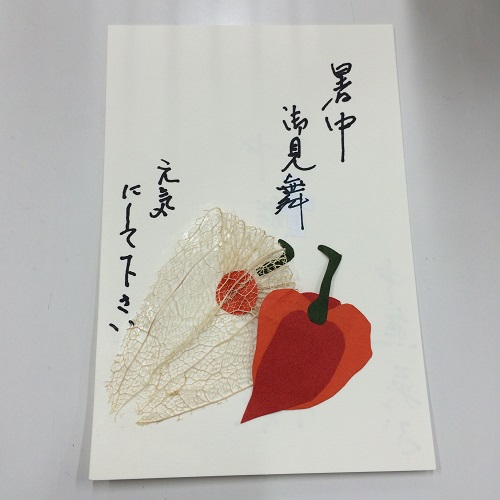 暑中
御見舞
元気
にして下さい